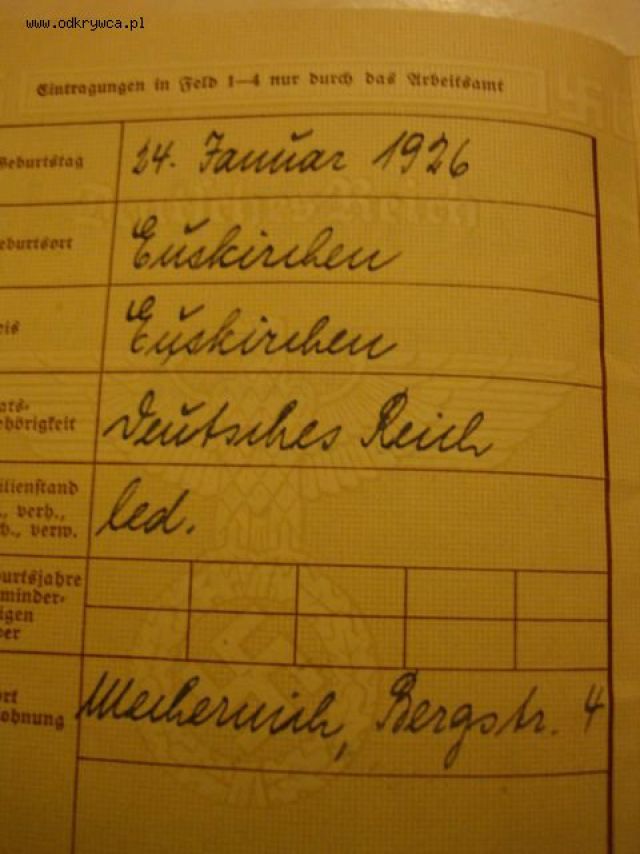 www.odkrywca.pl
Eintragungen in Feld 1—4 nur durch das Arbeitsamt
Geburtstag 24. Januar 1926
Deutsches Reich
eburtsort Euskirchen
eis Euskirchen
ats-
ehörigkeit Deutsches Reich
ilienstand
., verh.,
h., verw. led.
urtsjahre
minder-
igen
der
ort
ohnung Mechernich, Bergstr. 4